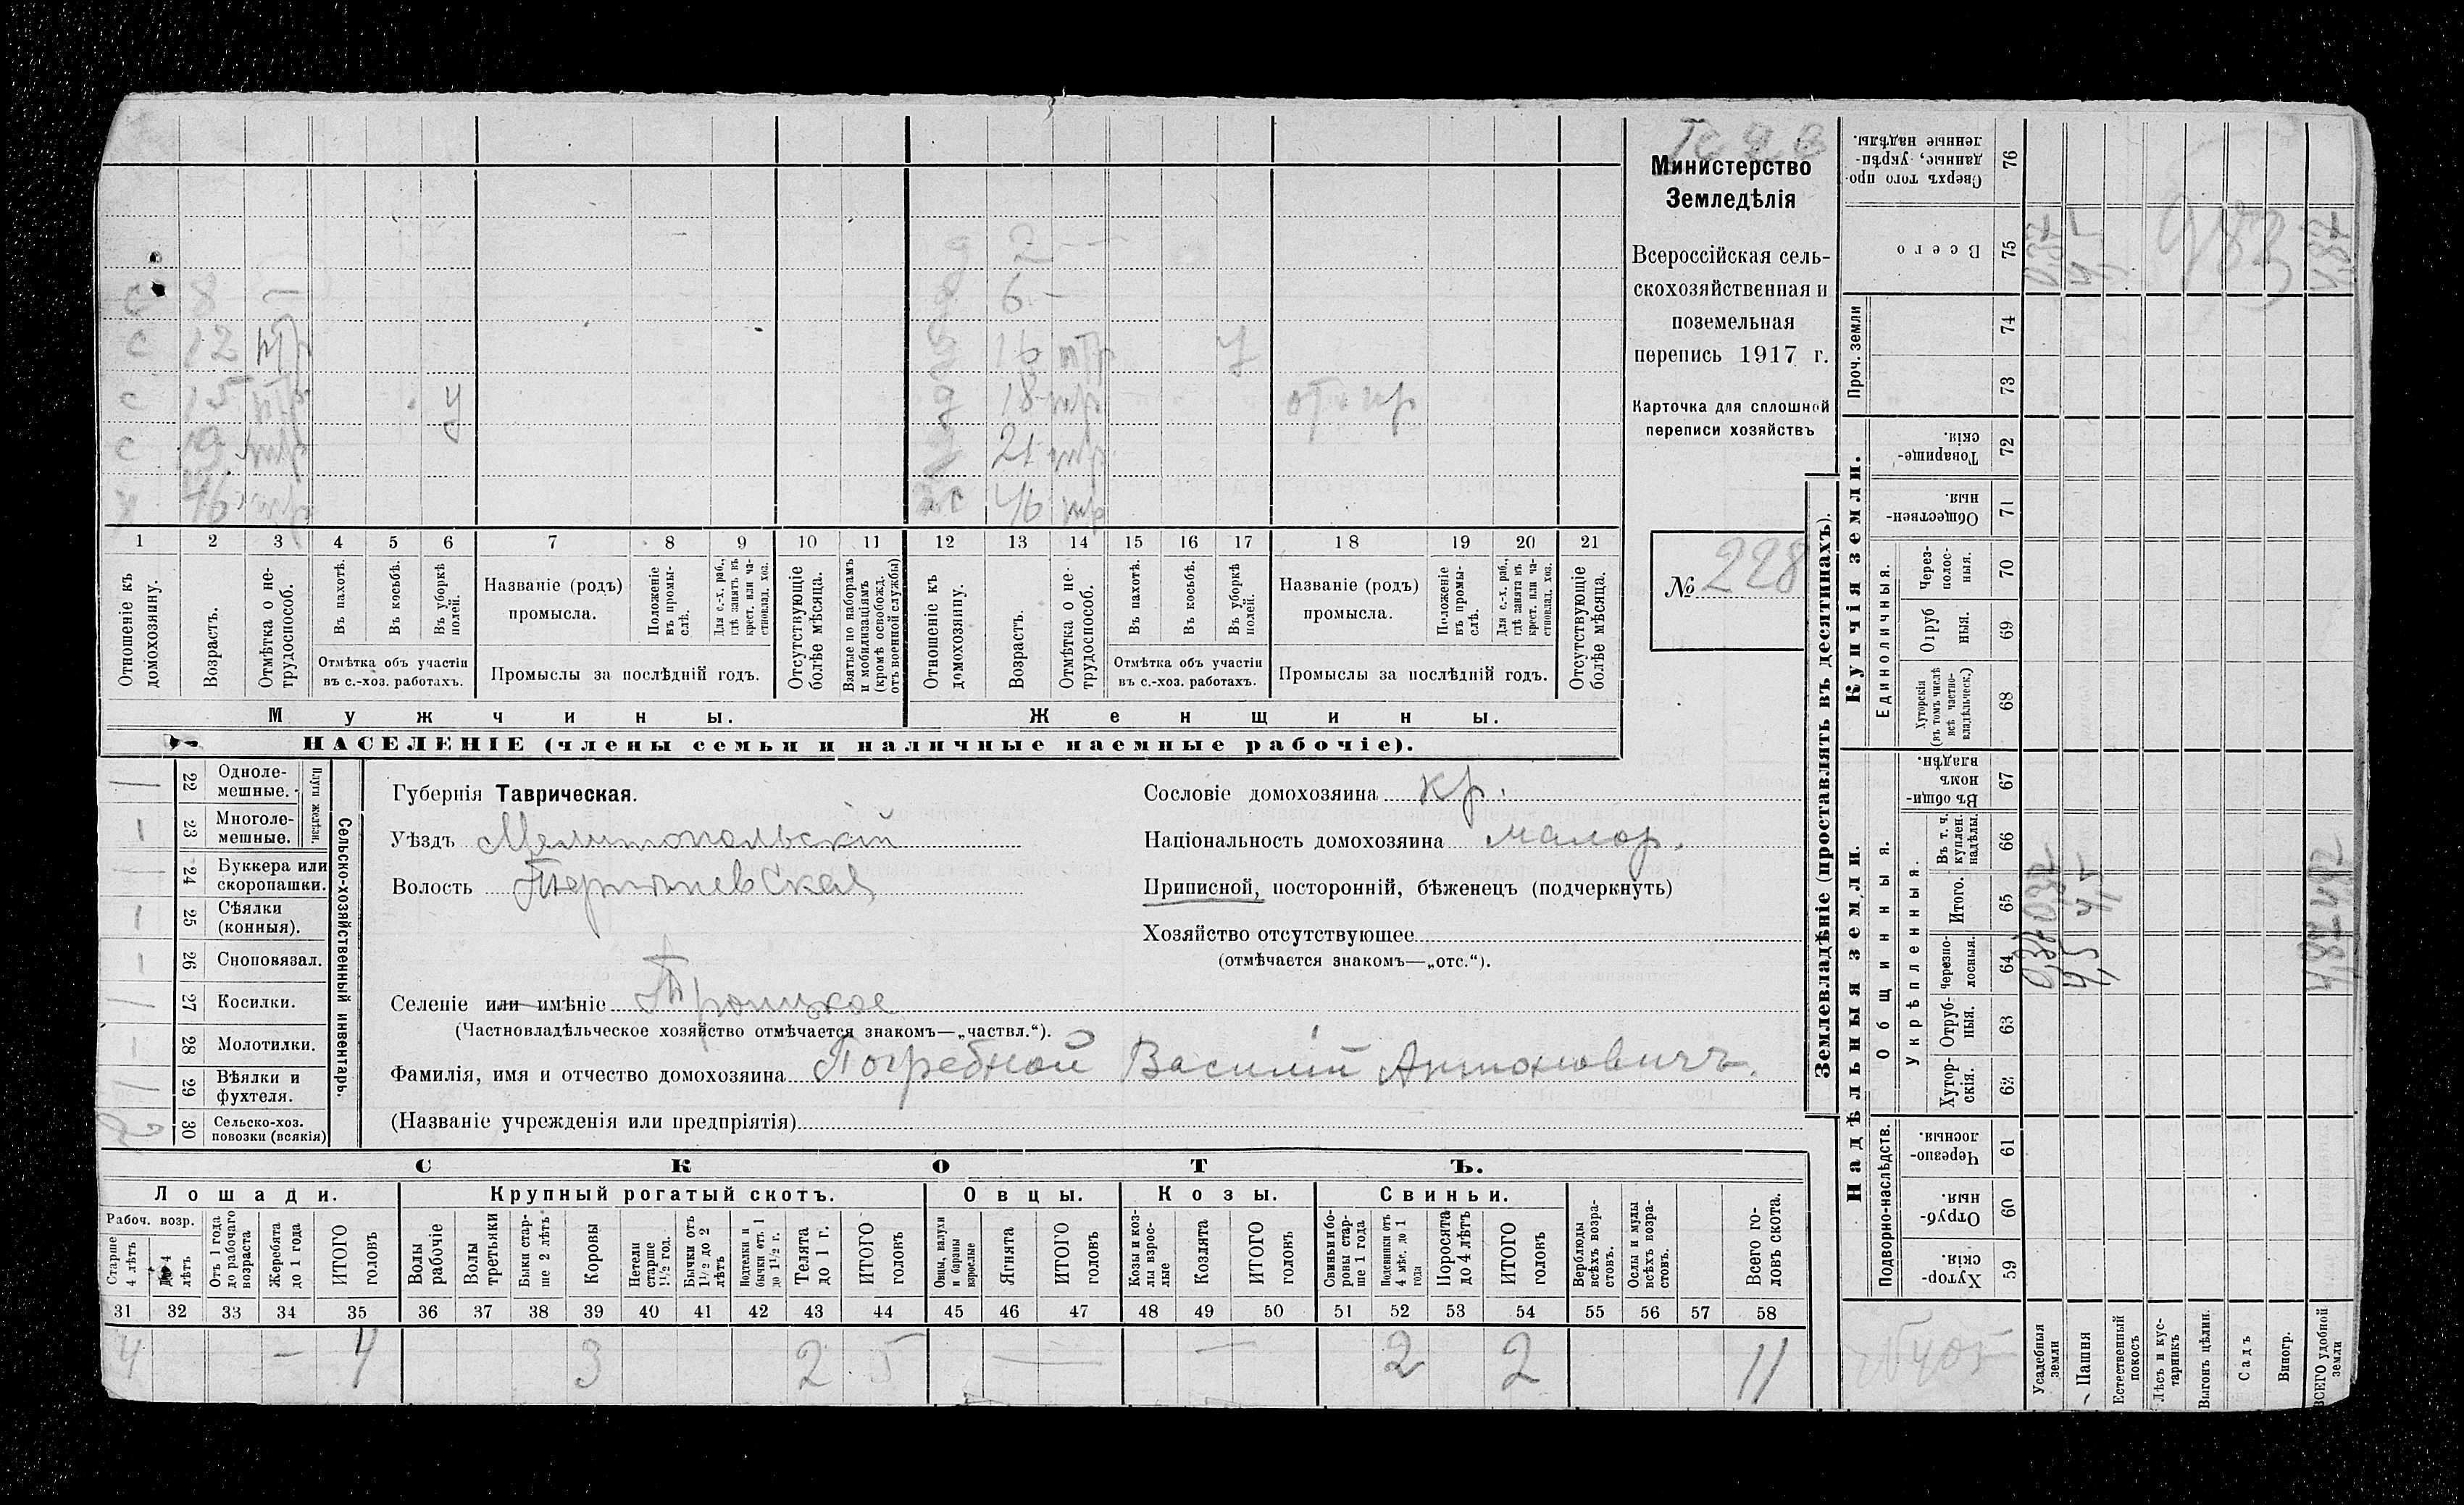 с 8 —
с 12 тр
с 15 тр у
с 19 тр
х 46 тр
д 2 —
д 6 —
д 16 тр у
д 18 тр
д 21 тр
ж 46 тр
1 2 3 4 5 6 7 8 9 10 11 12 13 14 15 16 17 18 19 20 21
Отношеніе къ домохозяину.
Возрастъ.
Отмѣтка о не-трудоспособ.
Въ пахотѣ.
Въ косьбѣ.
Въ уборкѣ полей.
Отмѣтка объ участіи
въ с.-хоз. работахъ.
Названіе (родъ)
промысла.
Положеніе въ промы-слѣ.
Для с.-х. раб., гдѣ занятъ въ крест. или ча-стновлад. хоз.
Промыслы за послѣдній годъ.
Отсутствующіе болѣе мѣсяца.
Взятые по наборамъ и мобилизаціямъ (кромѣ освобожд. отъ военной службы)
Отношеніе къ домохозяину.
Возрастъ.
Отмѣтка о не-трудоспособ.
Въ пахотѣ.
Въ косьбѣ.
Въ уборкѣ полей.
Отмѣтка объ участіи
въ с.-хоз. работахъ.
Названіе (родъ)
промысла.
Положеніе въ промы-слѣ.
Для с.-х. раб., гдѣ занята въ крест. или ча-стновлад. хоз.
Промыслы за послѣдній годъ.
Отсутствующіе болѣе мѣсяца.
Мужчины.
Женщины.
НАСЕЛЕНІЕ (члены семьи и наличные наемные рабочіе).
Министерство
Земледѣлія
Всероссійская сель-
скохозяйственная и
поземельная
перепись 1917 г.
Карточка для сплошной
переписи хозяйствъ
№ 228
— 22 Одноле-мешные.
1 23 Многоле-мешные.
Плуги желѣзн.
— 24 Буккера или скоропашки.
1 25 Сѣялки (конныя).
1 26 Сноповязал.
27 Косилки.
28 Молотилки.
29 Вѣялки и фухтеля.
2 30 Сельско-хоз. повозки (всякія)
Сельско-хозяйственный инвентарь.
Губернія Таврическая.
Уѣздъ Мелитопольскій
Волость
Селеніе или имѣніе Троицкое
(Частновладѣльческое хозяйство отмѣчается знакомъ—„частвл.“).
Фамилія, имя и отчество домохозяина Погребной Василій Антоновичъ.
(Названіе учрежденія или предпріятія)
Сословіе домохозяина кр.
Національность домохозяина малор.
Приписной, посторонній, бѣженецъ (подчеркнуть)
Хозяйство отсутствующее
(отмѣчается знакомъ—„отс.“).
СКОТЪ.
Лошади. Крупный рогатый скотъ. Овцы. Козы. Свиньи.
Рабоч. возр.
Старше 4 лѣтъ
До 4 лѣтъ
Отъ 1 года до рабочаго возраста
Жеребята до 1 года
ИТОГО головъ
Волы рабочіе
Волы третьяки
Быки стар-ше 2 лѣтъ
Коровы
Нетели старше 1½ год.
Бычки отъ 1½ до 2 лѣтъ
Подтелки и бычки отъ 1 до 1½ г.
Телята до 1 г.
ИТОГО головъ
Овцы, валухи и бараны взрослые
Ягнята
ИТОГО головъ
Козы и коз-лы взрос-лые
Козлята
ИТОГО головъ
Свиньи и бо-ровы стар-ше 1 года
Подсвинки отъ 4 мѣс. до 1 года
Поросята до 4 лѣтъ
ИТОГО головъ
Верблюды всѣхъ возра-стовъ.
Ослы и мулы всѣхъ возра-стовъ.
Всего го-ловъ скота.
31 32 33 34 35 36 37 38 39 40 41 42 43 44 45 46 47 48 49 50 51 52 53 54 55 56 57 58
4 — 4 3 2 5 — — 2 2 11
Землевладѣніе (проставлять въ десятинахъ).
Купчія земли.
Надѣльныя земли.
Сверхъ того про-данные, укрѣп-ленные надѣлы. 76
Всего 75
Проч. земли 74 73
Товарище-скія. 72
Обществен-ныя. 71
Единоличныя.
Через-полос-ныя. 70
Отруб ныя. 69
Хуторскія (въ томъ числѣ всѣ частно-владѣльческ.) 68
Общинныя.
Въ общи-номъ владѣн. 67
Укрѣпленныя.
Въ т. ч. куплен. надѣлы. 66
Итого. 65
Черезпо-лосныя. 64
Отруб-ныя. 63
Хутор-скія. 62
Подворно-наслѣдств.
Черезпо-лосныя. 61
Отруб-ныя. 60
Хутор-скія. 59
Усадебныя земли
Пашня
Естественный покосъ
Лѣсъ и кус-тарникъ
Выгонъ цѣлин.
Садъ
Виногр.
ВСЕГО удобной земли